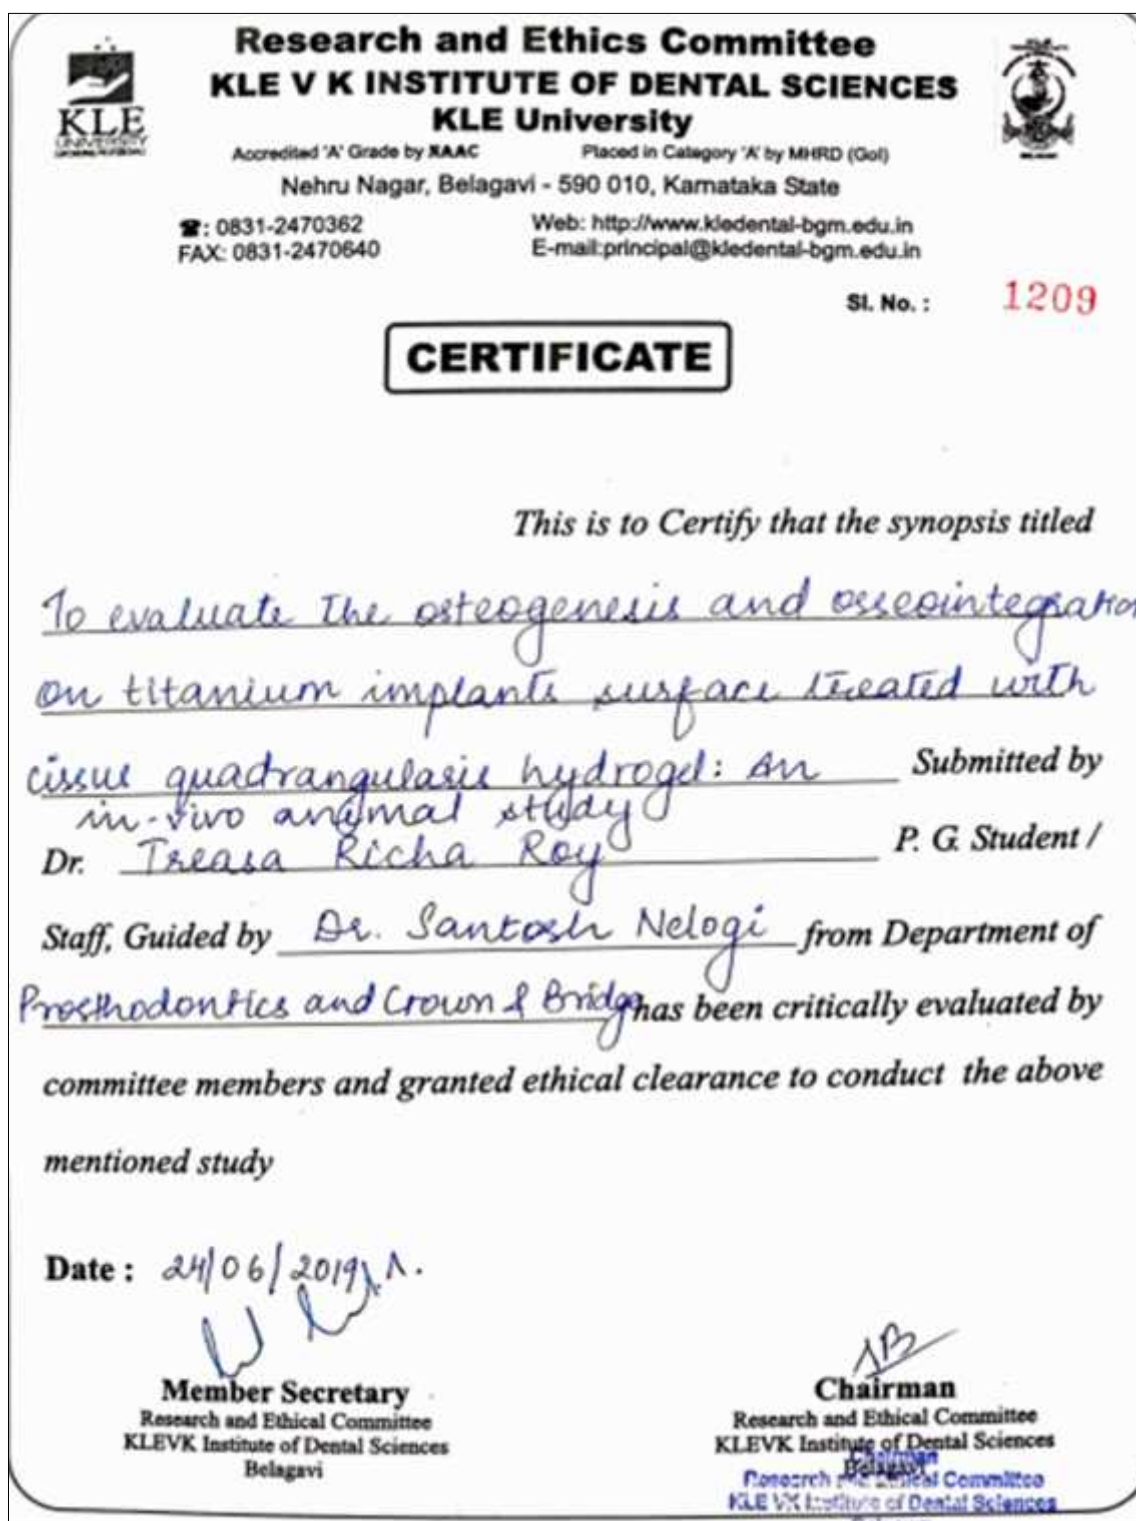 Research and Ethics Committee
KLE V K INSTITUTE OF DENTAL SCIENCES
KLE University
KLE
UNIVERSITY
Accredited 'A' Grade by NAAC Placed in Category 'A' by MHRD (GoI)
Nehru Nagar, Belagavi - 590 010, Karnataka State
☎: 0831-2470362 Web: http://www.kledental-bgm.edu.in
FAX: 0831-2470640 E-mail:principal@kledental-bgm.edu.in
Sl. No. : 1209
CERTIFICATE
This is to Certify that the synopsis titled
To evaluate the osteogenesis and osseointegration
on titanium implants surface treated with
cissus quadrangularis hydrogel: An Submitted by
in-vivo animal study
Dr. Treasa Richa Roy P. G. Student /
Staff, Guided by Dr. Santosh Nelogi from Department of
Prosthodontics and Crown & Bridge has been critically evaluated by
committee members and granted ethical clearance to conduct the above
mentioned study
Date : 24/06/2019
Member Secretary
Research and Ethical Committee
KLEVK Institute of Dental Sciences
Belagavi
Chairman
Research and Ethical Committee
KLEVK Institute of Dental Sciences
Belagavi
Chairman
Research and Ethical Committee
KLE VK Institute of Dental Sciences